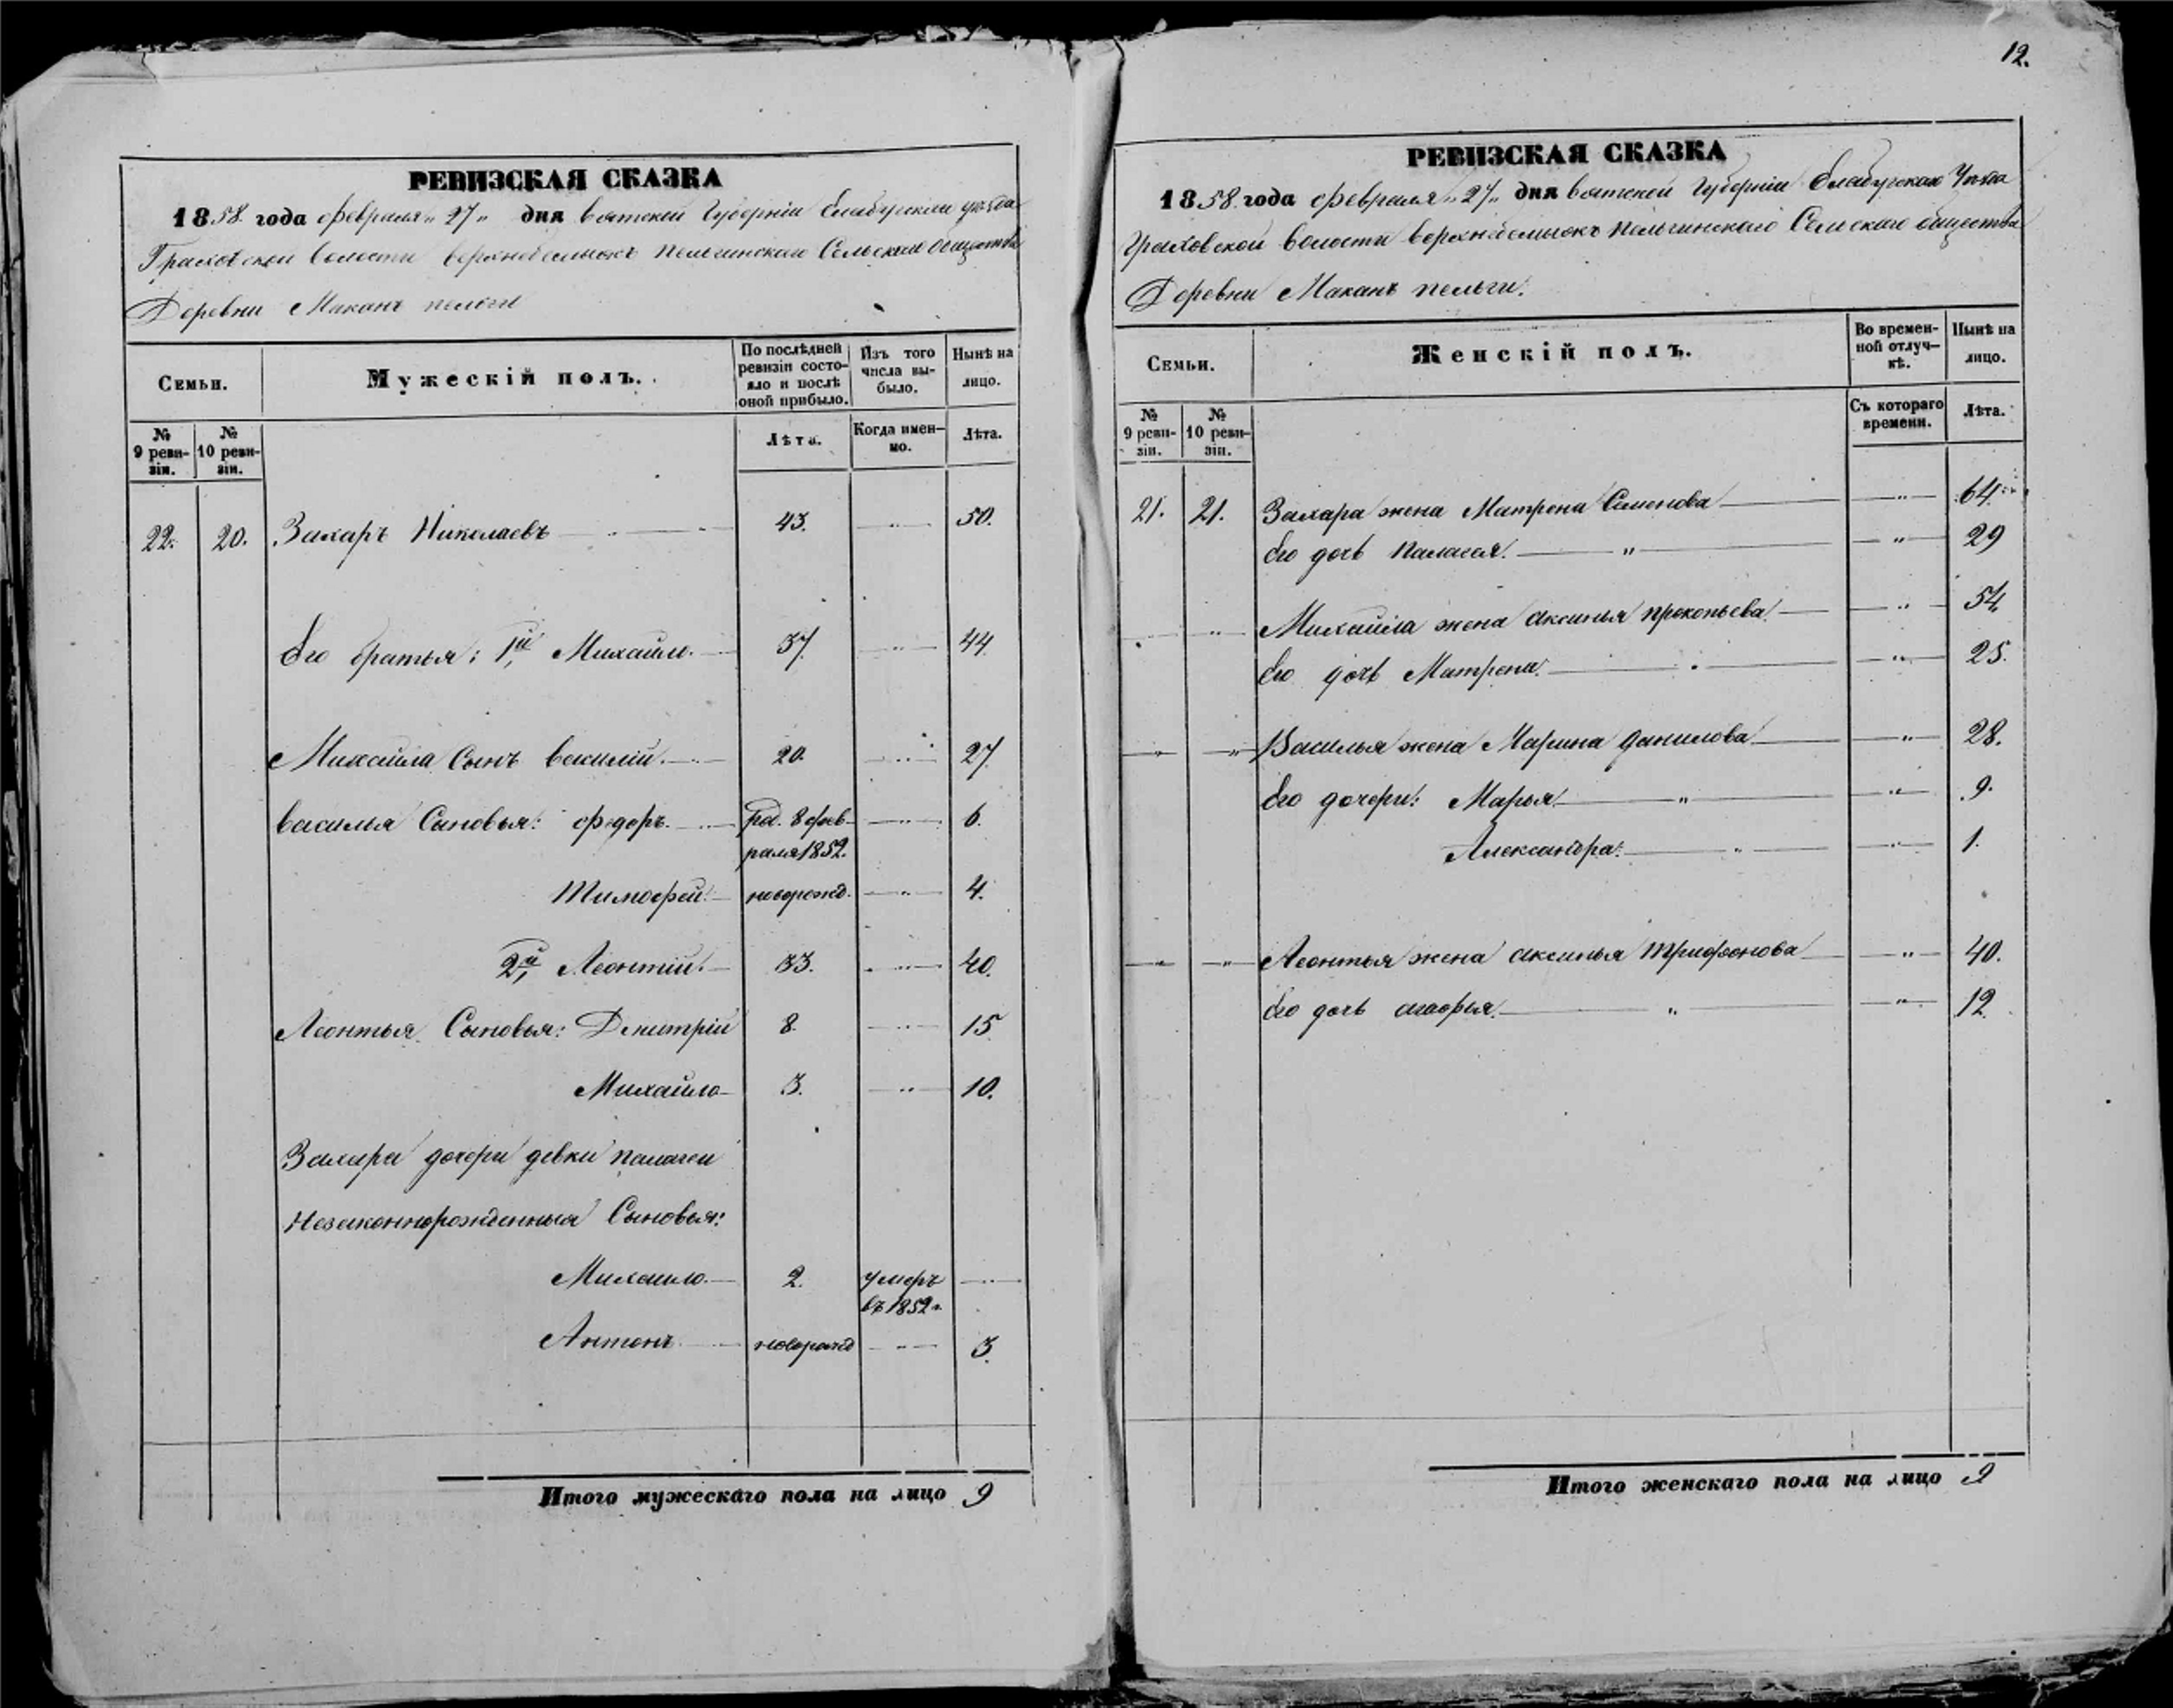 12.
РЕВИЗСКАЯ СКАЗКА
1858. года февраля „27„ дня вятской Губерніи Елабугскаго уѣзда
Граховской волости верхнебемыжъ пельгинскаго Сельскаго общества
Деревни Маканъ пельги
Семьи.
Мужескій полъ.
По послѣдней ревизіи состояло и послѣ оной прибыло.
Изъ того числа выбыло.
Нынѣ на лицо.
№ 9 ревизіи.
№ 10 ревизіи.
Лѣта.
Когда именно.
Лѣта.
22. 20. Захаръ Николаевъ — 43. — „ — 50.
Его братья: 1й, Михайло. — 37. — „ — 44
Михайла Сынъ василій. — 20. — „ — 27
василья Сыновья: федоръ. — Род. 8 фев- — „ — 6.
раля 1852.
Тимофей. — новорожд. — „ — 4.
2й, Леонтій. — 33. — „ — 40.
Леонтья Сыновья: Дмитрій 8. — „ — 15
Михайло — 3. — „ — 10.
Захара дочери девки палагеи
Незаконнорожденныя Сыновья:
Михайло. — 2. умеръ — „ —
въ 1852 г.
Антонъ — новорожд — „ — 3.
Итого мужескаго пола на лицо 9
РЕВИЗСКАЯ СКАЗКА
1858. года февраля „27„ дня вятской Губерніи Елабугскаго Уѣзда
Граховской волости верхнебемыжъ пельгинскаго Сельскаго общества
Деревни Маканъ пельги.
Семьи.
Женскій полъ.
Во временной отлучкѣ.
Нынѣ на лицо.
№ 9 ревизіи.
№ 10 ревизіи.
Съ котораго времени.
Лѣта.
21. 21. Захара жена Матрона Семенова — „ — 64.
Его дочь палагея. — „ — — „ — 29
— „ — Михайла жена аксинья прокопьева — „ — 54
Его дочь Матрена. — „ — — „ — 25.
— „ — — „ Василья жена Марина данилова — „ — 28.
Его дочери: Марья — „ — — „ — 9.
Александра: — „ — — „ — 1.
— „ — — „ — Леонтья жена аксинья трифонова — „ — 40.
Его дочь агафья. — „ — — „ — 12.
Итого женскаго пола на лицо 9